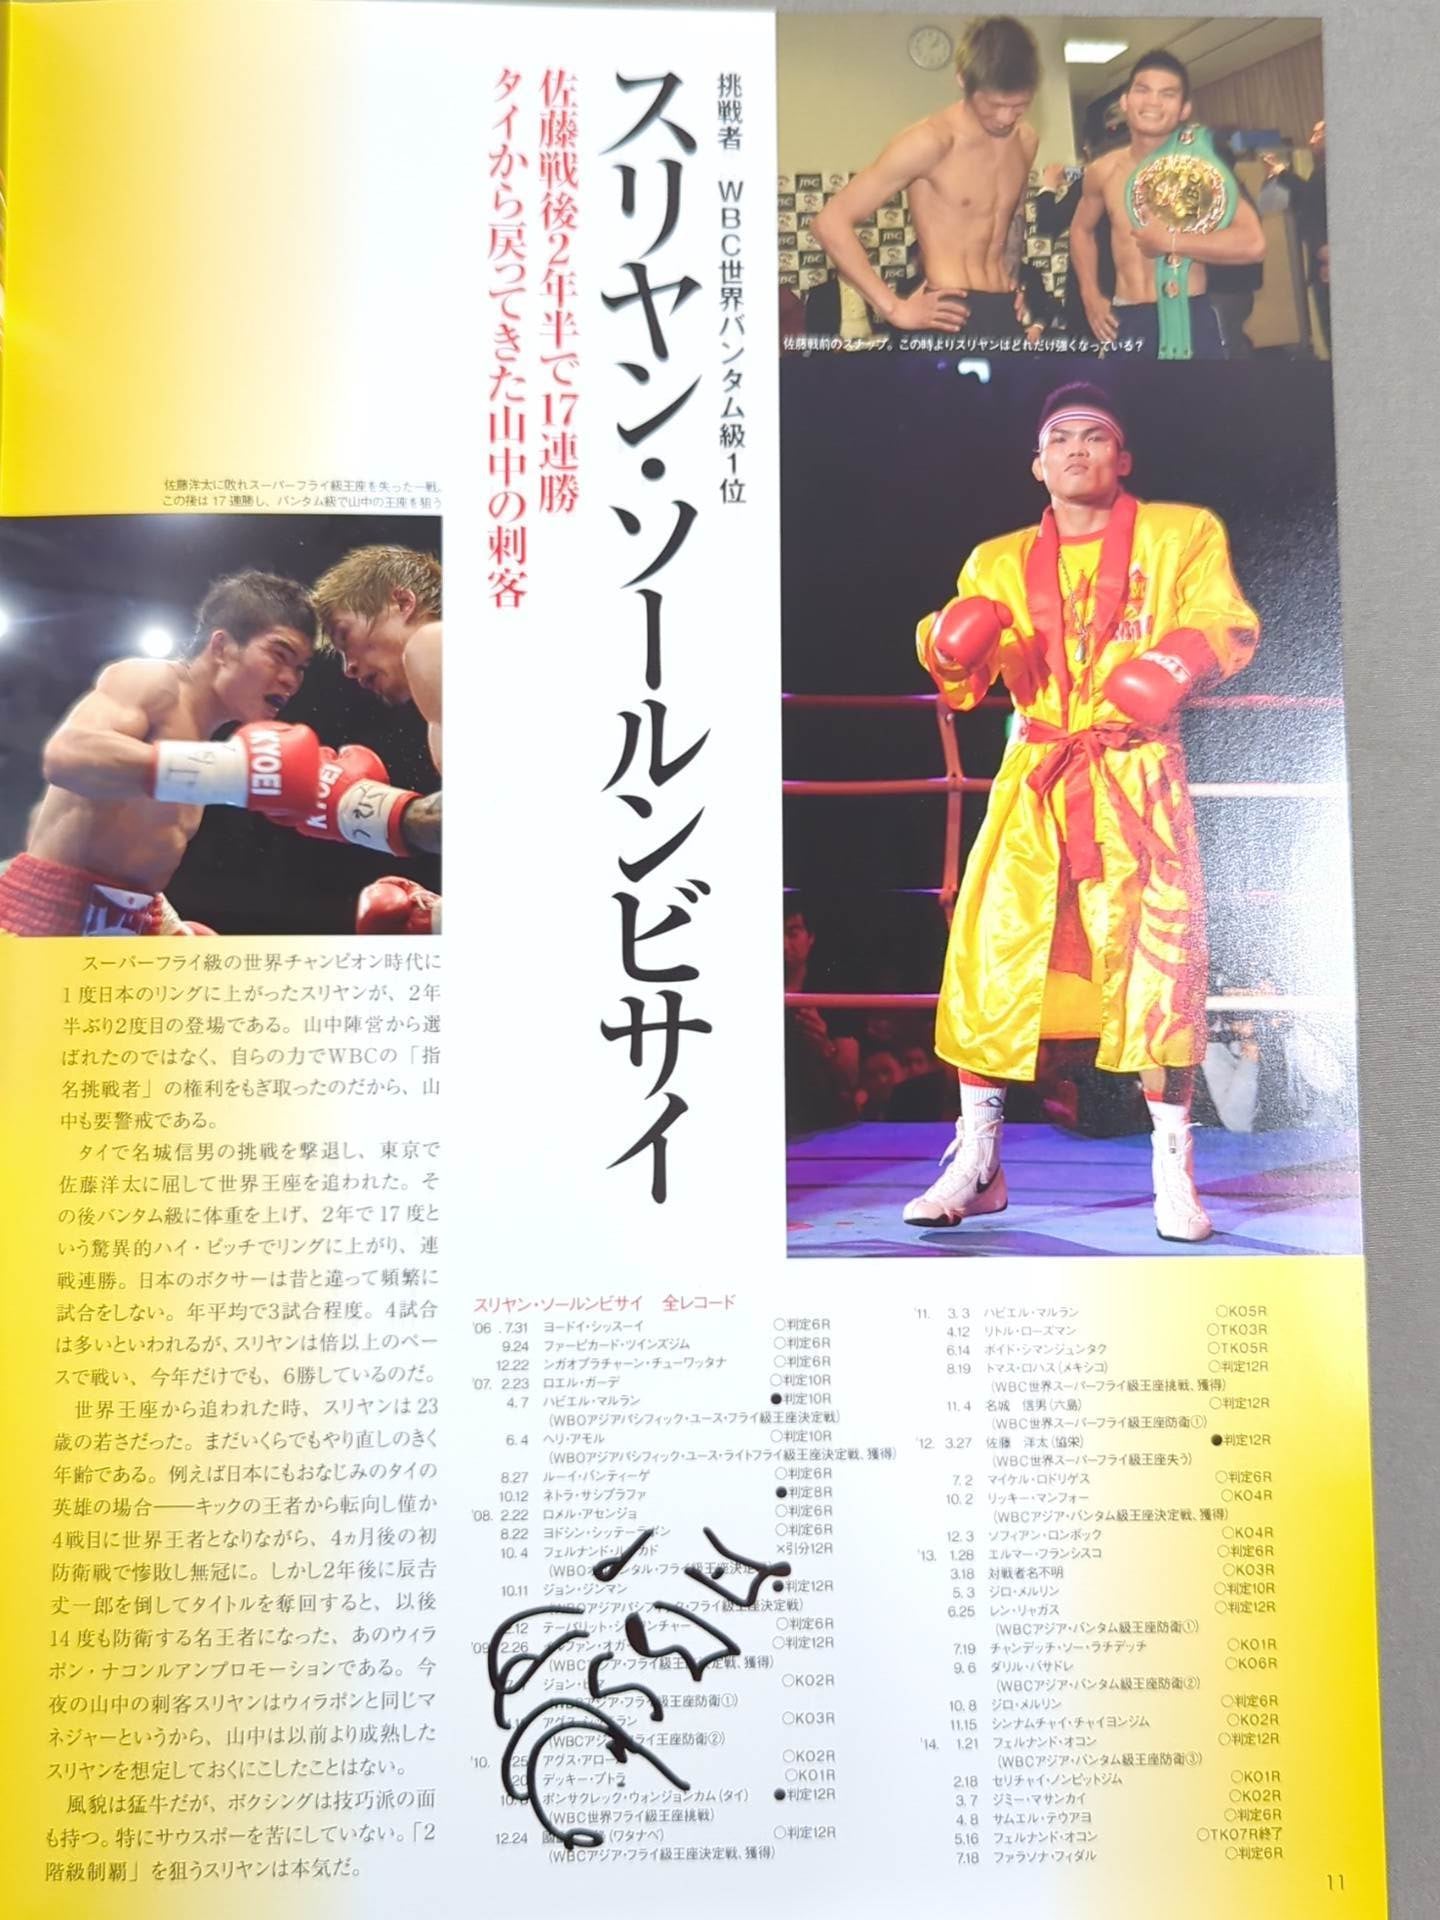 挑戦者 WBC世界バンタム級1位
スリヤン・ソールンビサイ
佐藤戦後2年半で17連勝
タイから戻ってきた山中の刺客
JBC
佐藤戦前のスナップ。この時よりスリヤンはどれだけ強くなっている?
佐藤洋太に敗れスーパーフライ級王座を失った一戦。
この後は17連勝し、バンタム級で山中の王座を狙う
KYOEI
スーパーフライ級の世界チャンピオン時代に
1度日本のリングに上がったスリヤンが、2年
半ぶり2度目の登場である。山中陣営から選
ばれたのではなく、自らの力でWBCの「指
名挑戦者」の権利をもぎ取ったのだから、山
中も要警戒である。
タイで名城信男の挑戦を撃退し、東京で
佐藤洋太に屈して世界王座を追われた。そ
の後バンタム級に体重を上げ、2年で17度と
いう驚異的ハイ・ピッチでリングに上がり、連
戦連勝。日本のボクサーは昔と違って頻繁に
試合をしない。年平均で3試合程度。4試合
は多いといわれるが、スリヤンは倍以上のペー
スで戦い、今年だけでも、6勝しているのだ。
世界王座から追われた時、スリヤンは23
歳の若さだった。まだいくらでもやり直しのきく
年齢である。例えば日本にもおなじみのタイの
英雄の場合――キックの王者から転向し僅か
4戦目に世界王者となりながら、4ヵ月後の初
防衛戦で惨敗し無冠に。しかし2年後に辰吉
丈一郎を倒してタイトルを奪回すると、以後
14度も防衛する名王者になった、あのウィラ
ポン・ナコンルアンプロモーションである。今
夜の山中の刺客スリヤンはウィラポンと同じマ
ネジャーというから、山中は以前より成熟した
スリヤンを想定しておくにこしたことはない。
風貌は猛牛だが、ボクシングは技巧派の面
も持つ。特にサウスポーを苦にしていない。「2
階級制覇」を狙うスリヤンは本気だ。
スリヤン・ソールンビサイ 全レコード
'06.7.31 ヨードイ・シッスーイ ○判定6R
9.24 ファーピカード・ツインズジム ○判定6R
12.22 ンガオプラチャーン・チューワッタナ ○判定6R
'07. 2.23 ロエル・ガーデ ○判定10R
4.7 ハビエル・マルラン ●判定10R
(WBOアジアパシフィック・ユース・フライ級王座決定戦)
6.4 ヘリ・アモル ○判定10R
(WBOアジアパシフィック・ユース・ライトフライ級王座決定戦、獲得)
8.27 ルーイ・パンティーゲ ○判定6R
10.12 ネトラ・サシプラファ ●判定8R
'08. 2.22 ロメル・アセンジョ ○判定6R
8.22 ヨドシン・シッテーラポン ○判定6R
10.4 フェルナンド・ル カド ×引分12R
(WBOオ ンタル・フライ級王座決定戦)
10.11 ジョン・ジンマン ●判定12R
(WBOアジアパシフィック・フライ級王座決定戦)
.12 テーパリット・シ ンチャー ○判定6R
'09. 2.26 ルファン・オガー ○判定12R
(WBCアジア・フライ級王座決定戦、獲得)
ジョン・ビ ○KO2R
(WBCアジア・フライ級王座防衛①)
アグス・ ラン ○KO3R
(WBCアジ フライ王座防衛②)
'10. .25 アグス・アロー ○KO2R
.20 デッキー・プトラ ○KO1R
10.8 ポンサクレック・ウォンジョンカム(タイ) ●判定12R
(WBC世界フライ級王座挑戦)
12.24 國 (ワタナベ) ○判定12R
(WBCアジア・フライ級王座決定戦、獲得)
'11. 3.3 ハビエル・マルラン ○KO5R
4.12 リトル・ローズマン ○TKO3R
6.14 ボイド・シマンジュンタク ○TKO5R
8.19 トマス・ロハス(メキシコ) ○判定12R
(WBC世界スーパーフライ級王座挑戦、獲得)
11.4 名城 信男(六島) ○判定12R
(WBC世界スーパーフライ級王座防衛①)
'12. 3.27 佐藤 洋太(協栄) ●判定12R
(WBC世界スーパーフライ級王座失う)
7.2 マイケル・ロドリゲス ○判定6R
10.2 リッキー・マンフォー ○KO4R
(WBCアジア・バンタム級王座決定戦、獲得)
12.3 ソフィアン・ロンボック ○KO4R
'13. 1.28 エルマー・フランシスコ ○判定6R
3.18 対戦者名不明 ○KO3R
5.3 ジロ・メルリン ○判定10R
6.25 レン・リャガス ○判定12R
(WBCアジア・バンタム級王座防衛①)
7.19 チャンデッチ・ソー・ラチデッチ ○KO1R
9.6 ダリル・バサドレ ○KO6R
(WBCアジア・バンタム級王座防衛②)
10.8 ジロ・メルリン ○判定6R
11.15 シンナムチャイ・チャイヨンジム ○KO2R
'14. 1.21 フェルナンド・オコン ○判定12R
(WBCアジア・バンタム級王座防衛③)
2.18 セリチャイ・ノンビットジム ○KO1R
3.7 ジミー・マサンカイ ○KO2R
4.8 サムエル・テウアヨ ○判定6R
5.16 フェルナンド・オコン ○TKO7R終了
7.18 ファラソナ・フィダル ○判定6R
11